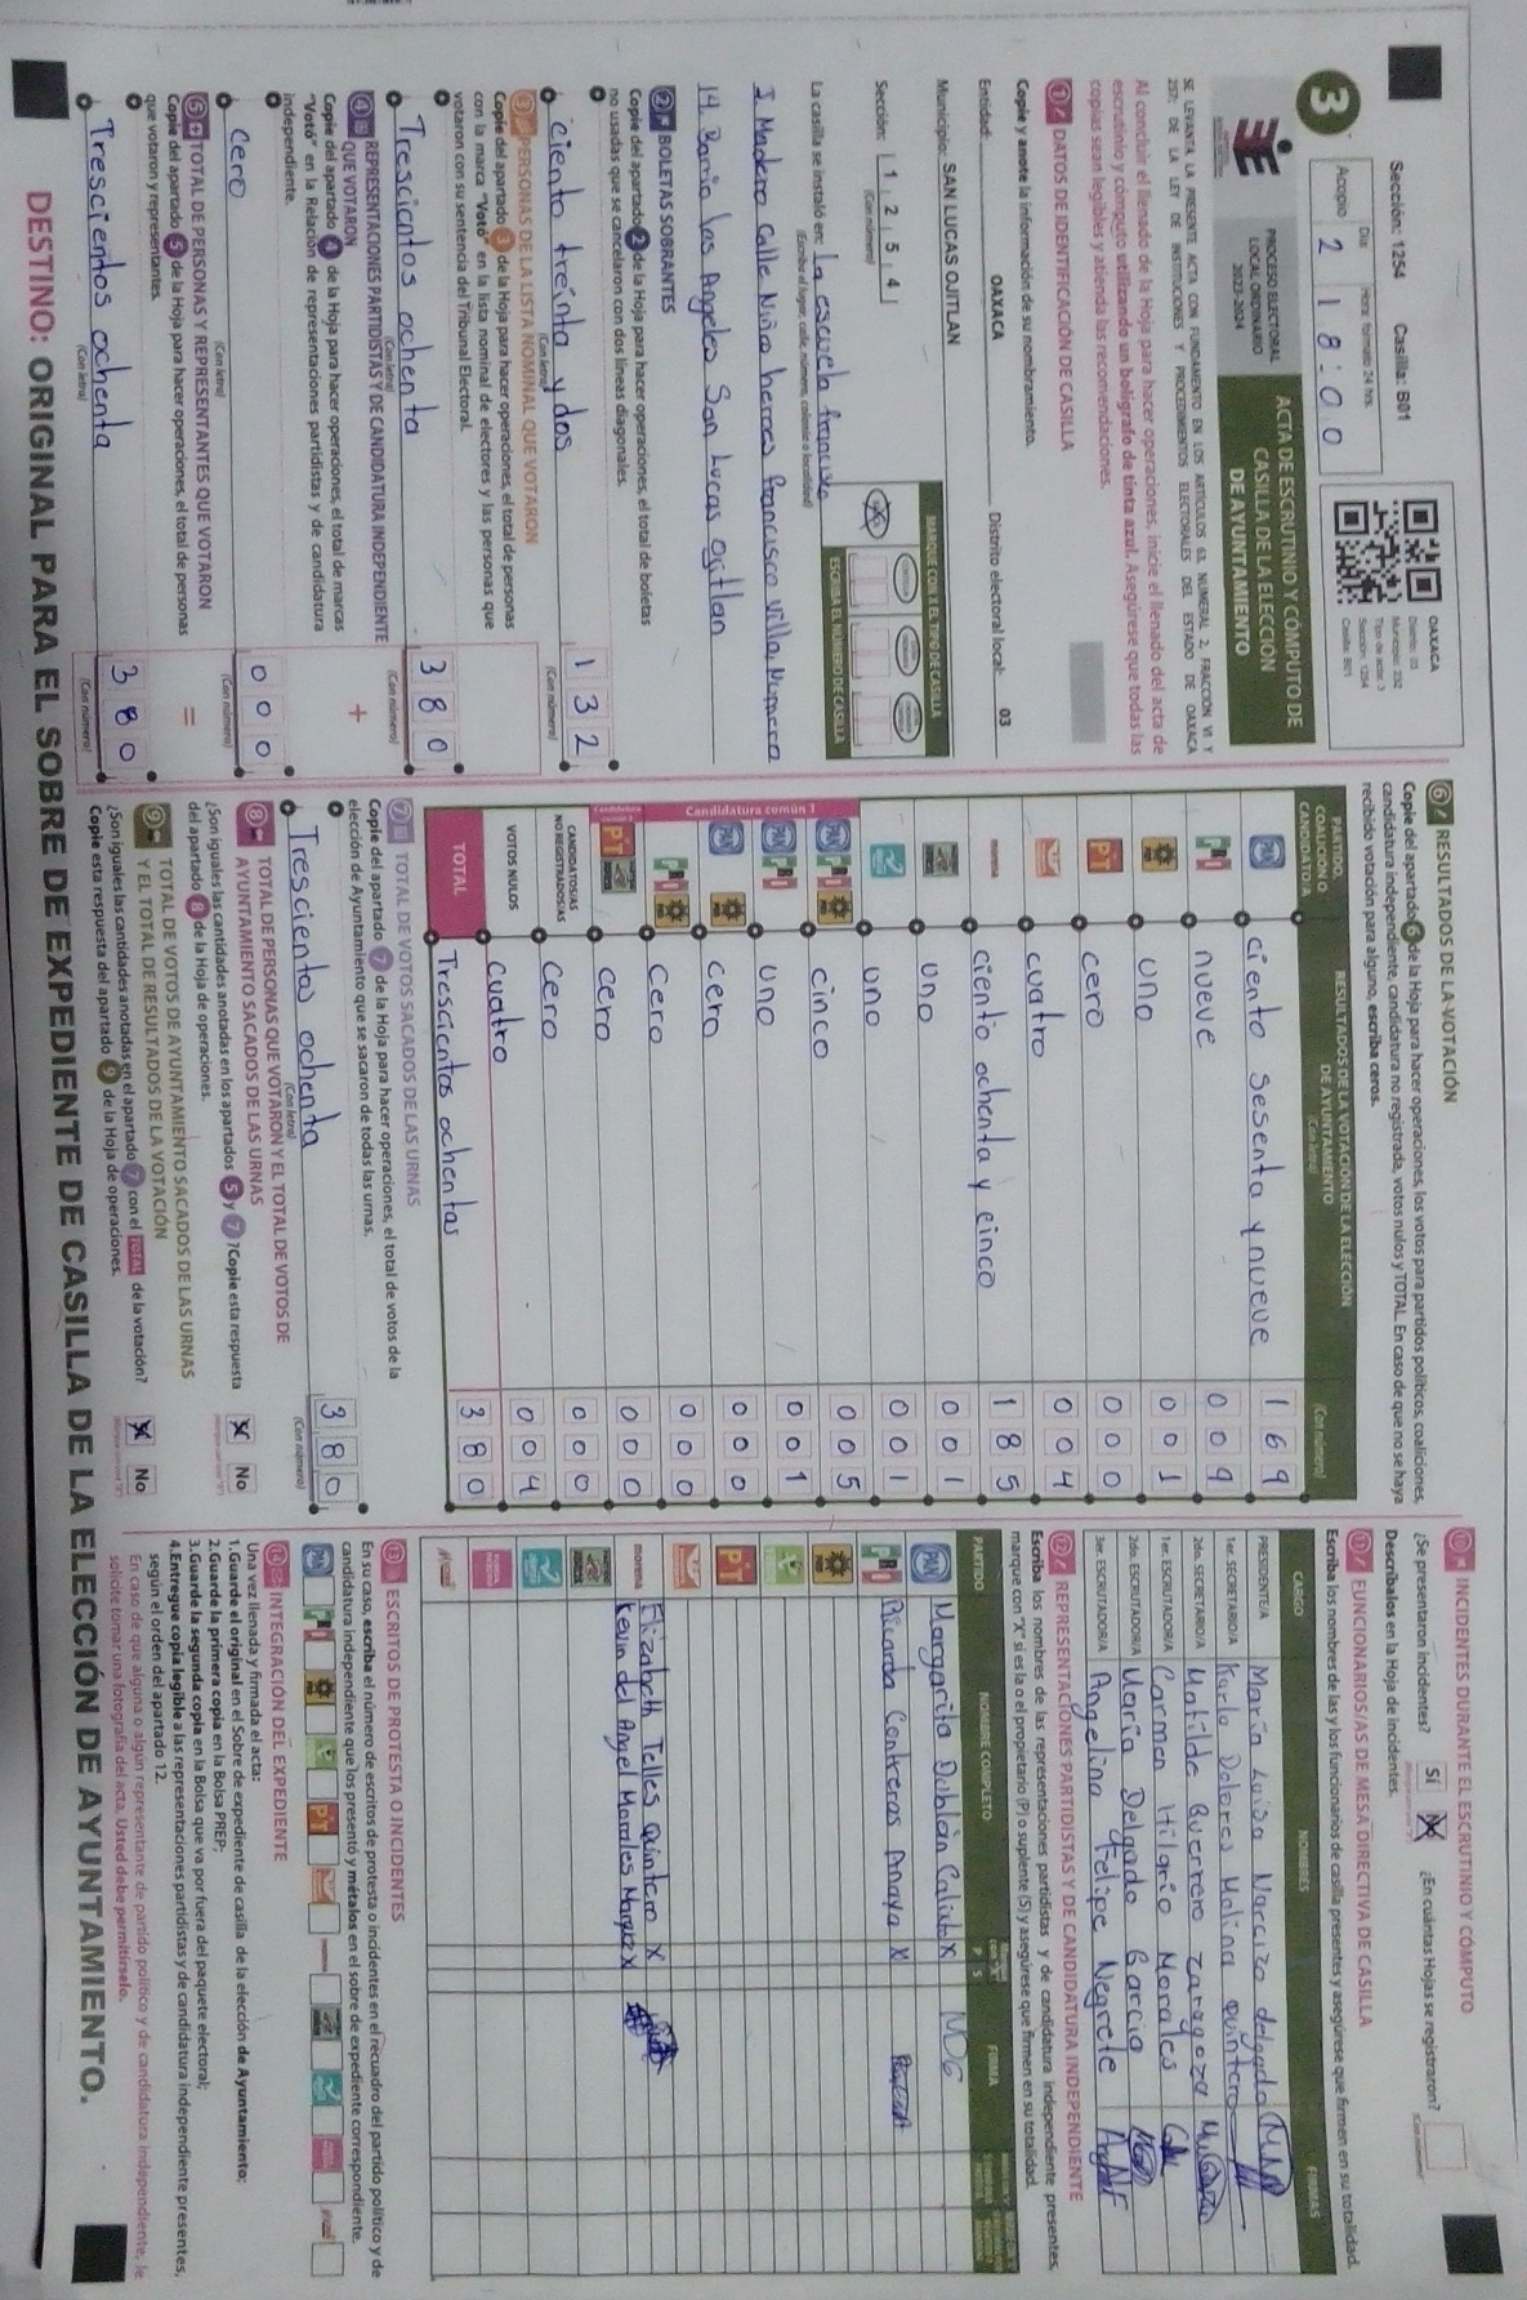 3
Sección: 1254 Casilla: B01
Acopio
Día:
Hora: formato 24 hrs.
2 18:00
OAXACA
Distrito: 03
Municipio: 232
Tipo de acta: 3
Sección: 1254
Casilla: B01
PROCESO ELECTORAL
LOCAL ORDINARIO
2023-2024
ACTA DE ESCRUTINIO Y CÓMPUTO DE
CASILLA DE LA ELECCIÓN
DE AYUNTAMIENTO
SE LEVANTA LA PRESENTE ACTA CON FUNDAMENTO EN LOS ARTÍCULOS 63, NUMERAL 2, FRACCIÓN VI Y
257; DE LA LEY DE INSTITUCIONES Y PROCEDIMIENTOS ELECTORALES DEL ESTADO DE OAXACA
Al concluir el llenado de la Hoja para hacer operaciones, inicie el llenado del acta de
escrutinio y cómputo utilizando un bolígrafo de tinta azul. Asegúrese que todas las
copias sean legibles y atienda las recomendaciones.
1 DATOS DE IDENTIFICACIÓN DE CASILLA
Copie y anote la información de su nombramiento.
Entidad: OAXACA Distrito electoral local: 03
Municipio: SAN LUCAS OJITLAN
Sección: 1 2 5 4
(Con número)
MARQUE CON X EL TIPO DE CASILLA
ESCRIBA EL NÚMERO DE CASILLA
La casilla se instaló en: La escuela francisco
(Escriba el lugar, calle, número, colonia o localidad)
I. Madero calle Niños heroes francisco villa, Numero
14. Barrio los Angeles San Lucas Ojitlan
2 BOLETAS SOBRANTES
Copie del apartado 2 de la Hoja para hacer operaciones, el total de boletas
no usadas que se cancelaron con dos líneas diagonales.
ciento treinta y dos 1 3 2
(Con letra) (Con número)
3 PERSONAS DE LA LISTA NOMINAL QUE VOTARON
Copie del apartado 3 de la Hoja para hacer operaciones, el total de personas
con la marca "Votó" en la lista nominal de electores y las personas que
votaron con su sentencia del Tribunal Electoral.
Trescientos ochenta 3 8 0
(Con letra) (Con número)
4 REPRESENTACIONES PARTIDISTAS Y DE CANDIDATURA INDEPENDIENTE
QUE VOTARON +
Copie del apartado 4 de la Hoja para hacer operaciones, el total de marcas
"Votó" en la Relación de representaciones partidistas y de candidatura
independiente.
cero 0 0 0
(Con letra) (Con número)
5 TOTAL DE PERSONAS Y REPRESENTANTES QUE VOTARON =
Copie del apartado 5 de la Hoja para hacer operaciones, el total de personas
que votaron y representantes.
Trescientos ochenta 3 8 0
(Con letra) (Con número)
6 RESULTADOS DE LA VOTACIÓN
Copie del apartado 6 de la Hoja para hacer operaciones, los votos para partidos políticos, coaliciones,
candidatura independiente, candidatura no registrada, votos nulos y TOTAL. En caso de que no se haya
recibido votación para alguno, escriba ceros.
PARTIDO,
COALICIÓN O
CANDIDATO/A
RESULTADOS DE LA VOTACIÓN DE LA ELECCIÓN
DE AYUNTAMIENTO
(Con letra) (Con número)
PAN ciento sesenta y nueve 1 6 9
PRI nueve 0 0 9
PRD uno 0 0 1
PT cero 0 0 0
cuatro 0 0 4
morena ciento ochenta y cinco 1 8 5
uno 0 0 1
uno 0 0 1
Candidatura común 1
PAN PRI PRD cinco 0 0 5
PAN PRI uno 0 0 1
PAN PRD cero 0 0 0
PRI PRD cero 0 0 0
PT cero 0 0 0
CANDIDATOS/AS
NO REGISTRADOS/AS cero 0 0 0
VOTOS NULOS cuatro 0 0 4
TOTAL Trescientos ochentas 3 8 0
7 TOTAL DE VOTOS SACADOS DE LAS URNAS
Copie del apartado 7 de la Hoja para hacer operaciones, el total de votos de la
elección de Ayuntamiento que se sacaron de todas las urnas.
Trescientos ochenta 3 8 0
(Con letra) (Con número)
8 TOTAL DE PERSONAS QUE VOTARON Y EL TOTAL DE VOTOS DE
AYUNTAMIENTO SACADOS DE LAS URNAS
¿Son iguales las cantidades anotadas en los apartados 5 y 7? Copie esta respuesta
del apartado 8 de la Hoja de operaciones.
X No
9 TOTAL DE VOTOS DE AYUNTAMIENTO SACADOS DE LAS URNAS
Y EL TOTAL DE RESULTADOS DE LA VOTACIÓN
¿Son iguales las cantidades anotadas en el apartado 7 con el TOTAL de la votación?
Copie esta respuesta del apartado 9 de la Hoja de operaciones.
X No
10 INCIDENTES DURANTE EL ESCRUTINIO Y CÓMPUTO
¿Se presentaron incidentes? Sí X ¿En cuántas Hojas se registraron?
Descríbalos en la Hoja de incidentes.
11 FUNCIONARIOS/AS DE MESA DIRECTIVA DE CASILLA
Escriba los nombres de las y los funcionarios de casilla presentes y asegúrese que firmen en su totalidad.
CARGO NOMBRES FIRMAS
PRESIDENTE/A María Luisa Narcizo delgado
1er. SECRETARIO/A Karla Dolores Molina Quintero
2do. SECRETARIO/A Matilde Guerrero Zaragoza
1er. ESCRUTADOR/A Carmen Hilario Morales
2do. ESCRUTADOR/A María Delgado Garcia
3er. ESCRUTADOR/A Angelina Felipe Negrete
12 REPRESENTACIONES PARTIDISTAS Y DE CANDIDATURA INDEPENDIENTE
Escriba los nombres de las representaciones partidistas y de candidatura independiente presentes,
marque con "X" si es la o el propietario (P) o suplente (S) y asegúrese que firmen en su totalidad.
PARTIDO NOMBRE COMPLETO P S FIRMA
PAN Margarito Doblan X
PRI Ricarda Contreras Anaya X
PRD
PT
morena Elizabeth Telles Quintero X
Kevin del Angel Morales Marquez X
13 ESCRITOS DE PROTESTA O INCIDENTES
En su caso, escriba el número de escritos de protesta o incidentes en el recuadro del partido político y de
candidatura independiente que los presentó y métalos en el sobre de expediente correspondiente.
PAN PRI PRD PT morena
14 INTEGRACIÓN DEL EXPEDIENTE
Una vez llenada y firmada el acta:
1.Guarde el original en el Sobre de expediente de casilla de la elección de Ayuntamiento;
2.Guarde la primera copia en la Bolsa PREP;
3.Guarde la segunda copia en la Bolsa que va por fuera del paquete electoral;
4.Entregue copia legible a las representaciones partidistas y de candidatura independiente presentes,
según el orden del apartado 12.
En caso de que alguna o algún representante de partido político y de candidatura independiente, le
solicite tomar una fotografía del acta, Usted debe permitírselo.
DESTINO: ORIGINAL PARA EL SOBRE DE EXPEDIENTE DE CASILLA DE LA ELECCIÓN DE AYUNTAMIENTO.